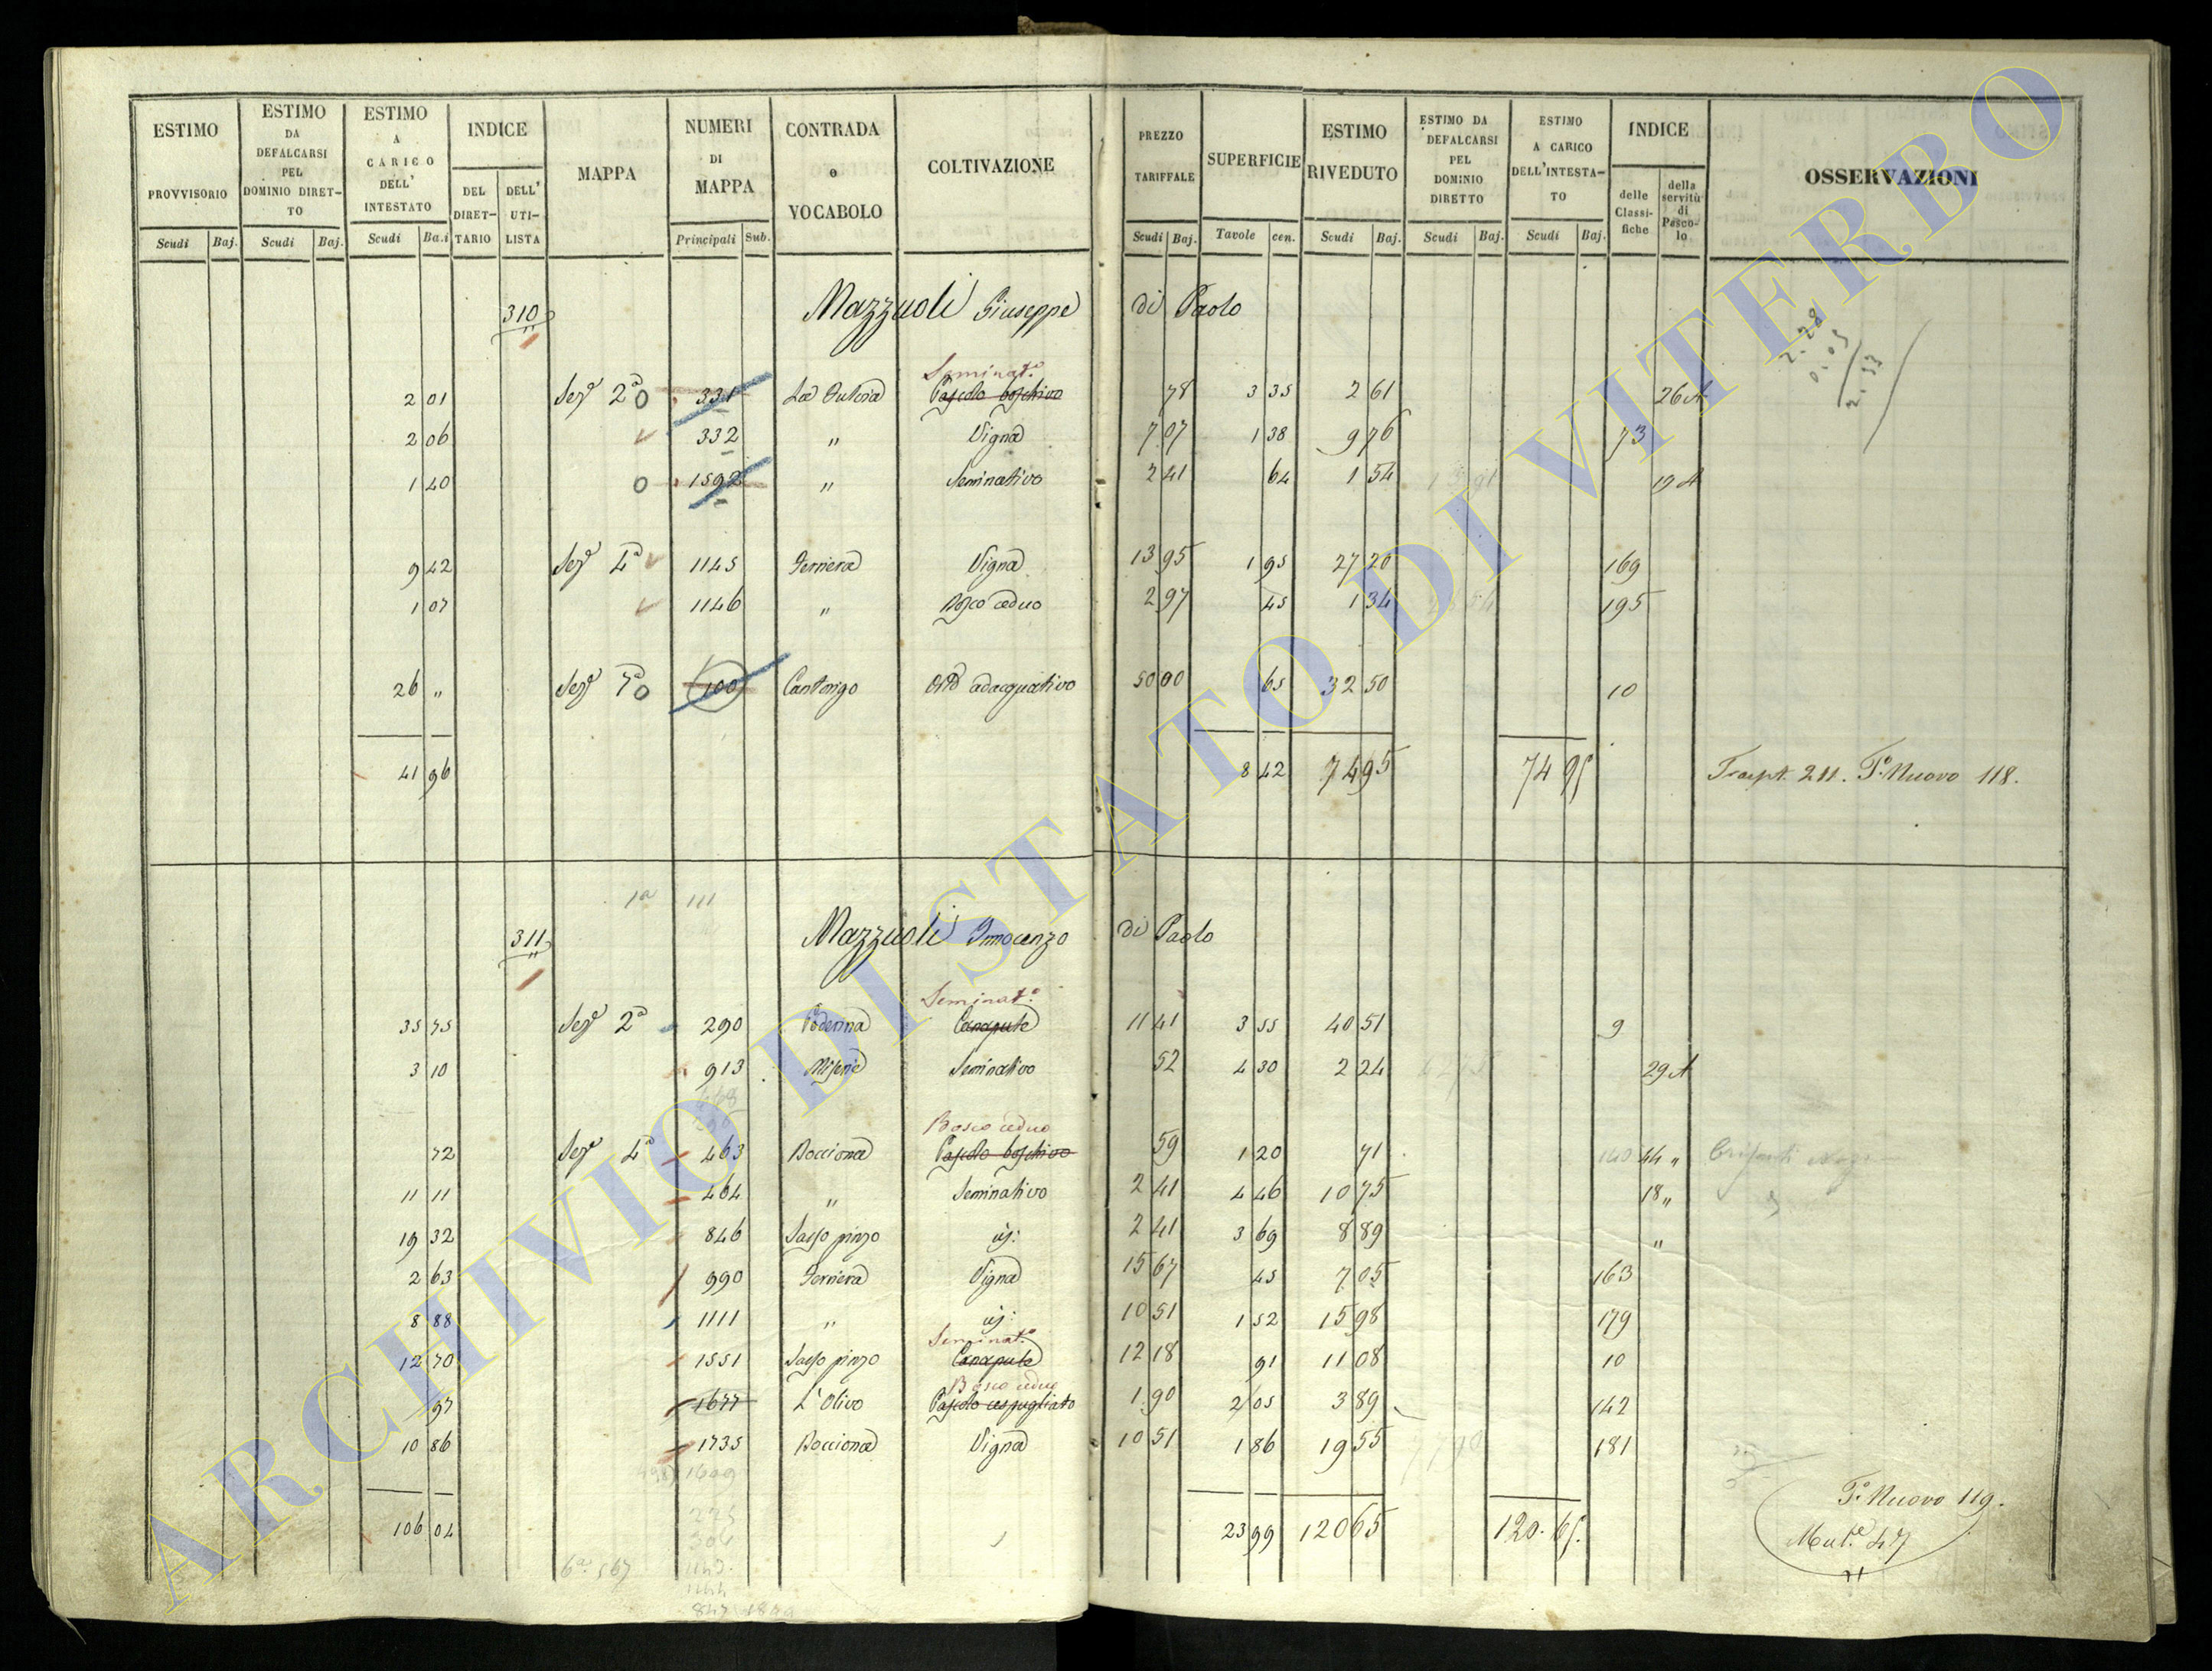 ESTIMO PROVVISORIO Scudi Baj. ESTIMO DA DEFALCARSI PEL DOMINIO DIRET-TO Scudi Baj. ESTIMO A CARICO DELL' INTESTATO Scudi Ba.i INDICE DEL DIRET-TARIO DELL' UTI-LISTA MAPPA NUMERI DI MAPPA Principali Sub. CONTRADA o VOCABOLO COLTIVAZIONE PREZZO TARIFFALE Scudi Baj. SUPERFICIE Tavole cen. ESTIMO RIVEDUTO Scudi Baj. ESTIMO DA DEFALCARSI PEL DOMINIO DIRETTO Scudi Baj. ESTIMO A CARICO DELL'INTESTA-TO Scudi Baj. INDICE delle Classi-fiche della servitù di Pasco-lo OSSERVAZIONI
310 Mazzuoli Giuseppe di Paolo
Seminat.o
2 01 Sez.e 2a 0 331 Pascolo boschivo 78 3 35 2 61 26 A
2 06 332 " Vigna 7 07 1 38 9 76 73
1 40 0 1592 " Seminativo 2 41 64 1 54 19 A
9 42 Sez.e 4a 1145 Ferriera Vigna 13 95 1 95 27 20 169
1 07 1146 " Bosco ceduo 2 97 45 1 34 195
26 " Sez.e 7a 0 100 Cantorigo Orto adacquativo 50 00 65 32 50 10
41 96 8 42 74 95 74 95 Trasp.t 211. T.o Nuovo 118.
1a 111
311 Mazzuoli Innocenzo di Paolo
Seminat.o
35 75 Sez.e 2a 290 Canapule 11 41 3 55 40 51 9
3 10 913 Seminativo 52 4 30 2 24 29 A
Bosco ceduo
72 Sez.e 4a 463 Bocciona Pascolo boschivo 59 1 20 71 44 "
11 11 464 " Seminativo 2 41 4 46 10 75 18 "
19 32 846 Sasso pinzo id: 2 41 3 69 8 89 "
2 63 990 Ferriera Vigna 15 67 45 7 05 163
8 88 1111 " id: 10 51 1 52 15 98 179
Seminat.o
12 70 1551 Sasso pinzo Canapule 12 18 91 11 08 10
Bosco ceduo
97 1677 L'Olivo Pascolo cespugliato 1 90 2 05 3 89 142
10 86 1735 Bocciona Vigna 10 51 1 86 19 55 181
106 04 23 99 120 65 120. 65. T.o Nuovo 119.
Mut.e 47
6a 567
ARCHIVIO DI STATO DI VITERBO